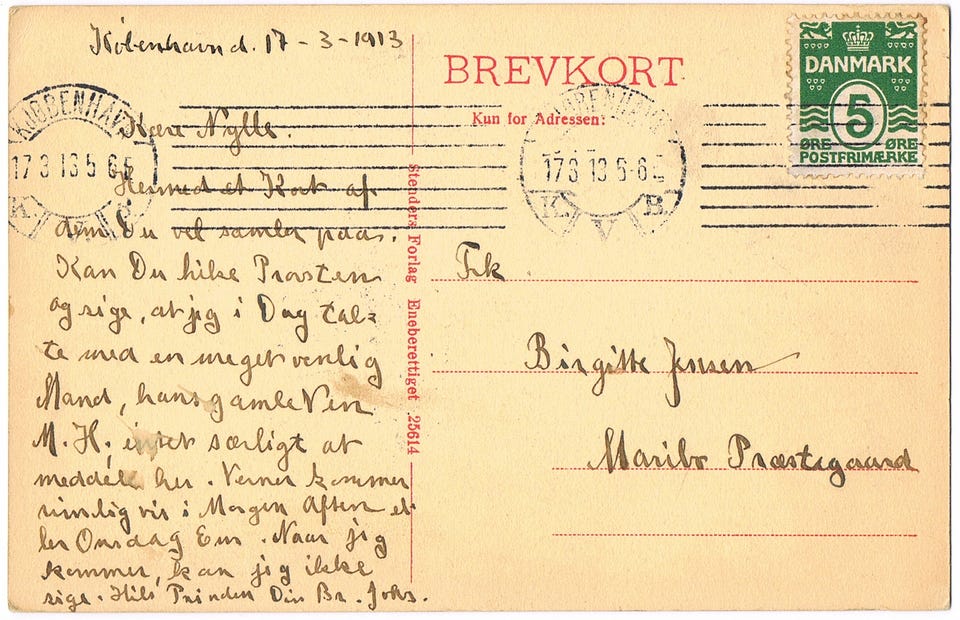 København d. 17-3-1913
Kære Nylle.
Hermed et Kort af
dem Du vel samler paa.
Kan Du hilse Provsten
og sige, at jeg i Dag tal=
te med en meget venlig
Mand, hans gamle Ven
M. H. intet særligt at
meddele her. Verner kommer
rimeligvis i Morgen Aften el=
ler Onsdag Em. Naar jig
kommer, kan jig ikke
sige. Hils Din Br. Johs.
BREVKORT
Kun for Adressen:
DANMARK
5
ØRE ØRE
POSTFRIMÆRKE
KJØBENHAVN
17 3 13 5-6 E
K. V B.
KJØBENHAVN
17 3 13 5-6 E
K. V B.
Stenders Forlag Eneberettiget 25614
Frk
Birgitte Jensen
Maribo Præstegaard